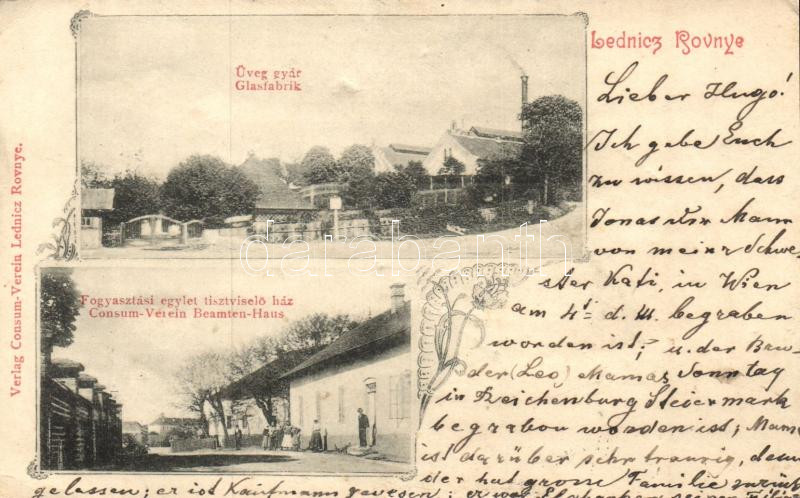 Lednicz Rovnye
Üveg gyár
Glasfabrik
Fogyasztási egylet tisztviselő ház
Consum-Verein Beamten-Haus
Verlag Consum-Verein Lednicz Rovnye.
darabanth
Lieber Hugo!
Ich gebe Euch
zu wissen, dass
Jonas der Mann
von meiner Schwe-
ster Kati, in Wien
am 4t d. M. begraben
worden ist; u. der Bru-
der (Leo) Mamas Sonntag
in Reichenburg Steiermark
begraben worden ist; Mama
ist darüber sehr traurig, denn
der hat grosse Familie zurück
gelassen; er ist Kaufmann gewesen; er war